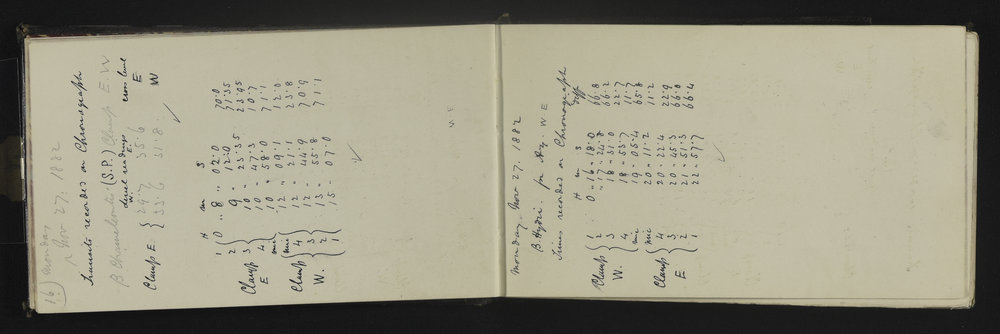 16)
Monday
Nov 27. 1882
Transits recorded on Chronograph
β Chamaeleontis (S.P.) Clamp E W
level readings cross level
W. E. E
Clamp E { 29.7 35.6 W
33.6 31.8.
H m s
1 0 .. 8 .. 02.0 70.0
2 12.0 71.35
Clamp 3 9 .. 23.35 23.95
E 4 10 .. 47.3 70.7
10 .. 58.0 71.1
mic 12 .. 09.1 12.0
mic 12 .. 21.1 23.8
Clamp 4 12 .. 44.9 70.9
W. 3 13 .. 55.8 71.1
2 15 .. 07.0
1
W. E
Monday. Nov 27. 1882
β Hydri. W E
Times recorded on Chronograph
H m s diff
Clamp 1 0 .. 16 .. 18.0 66.8
W. 2 .. 17 .. 24.8 66.2
3 18 .. 31.0 22.7
4 18 .. 53.7 11.7
mic 19 .. 05.4 65.8
mic 20 .. 11.2 11.2
Clamp 4 20 .. 22.4 22.9
E 3 20 .. 45.3 66.0
2 21 .. 51.3 66.4
1 22 .. 57.7